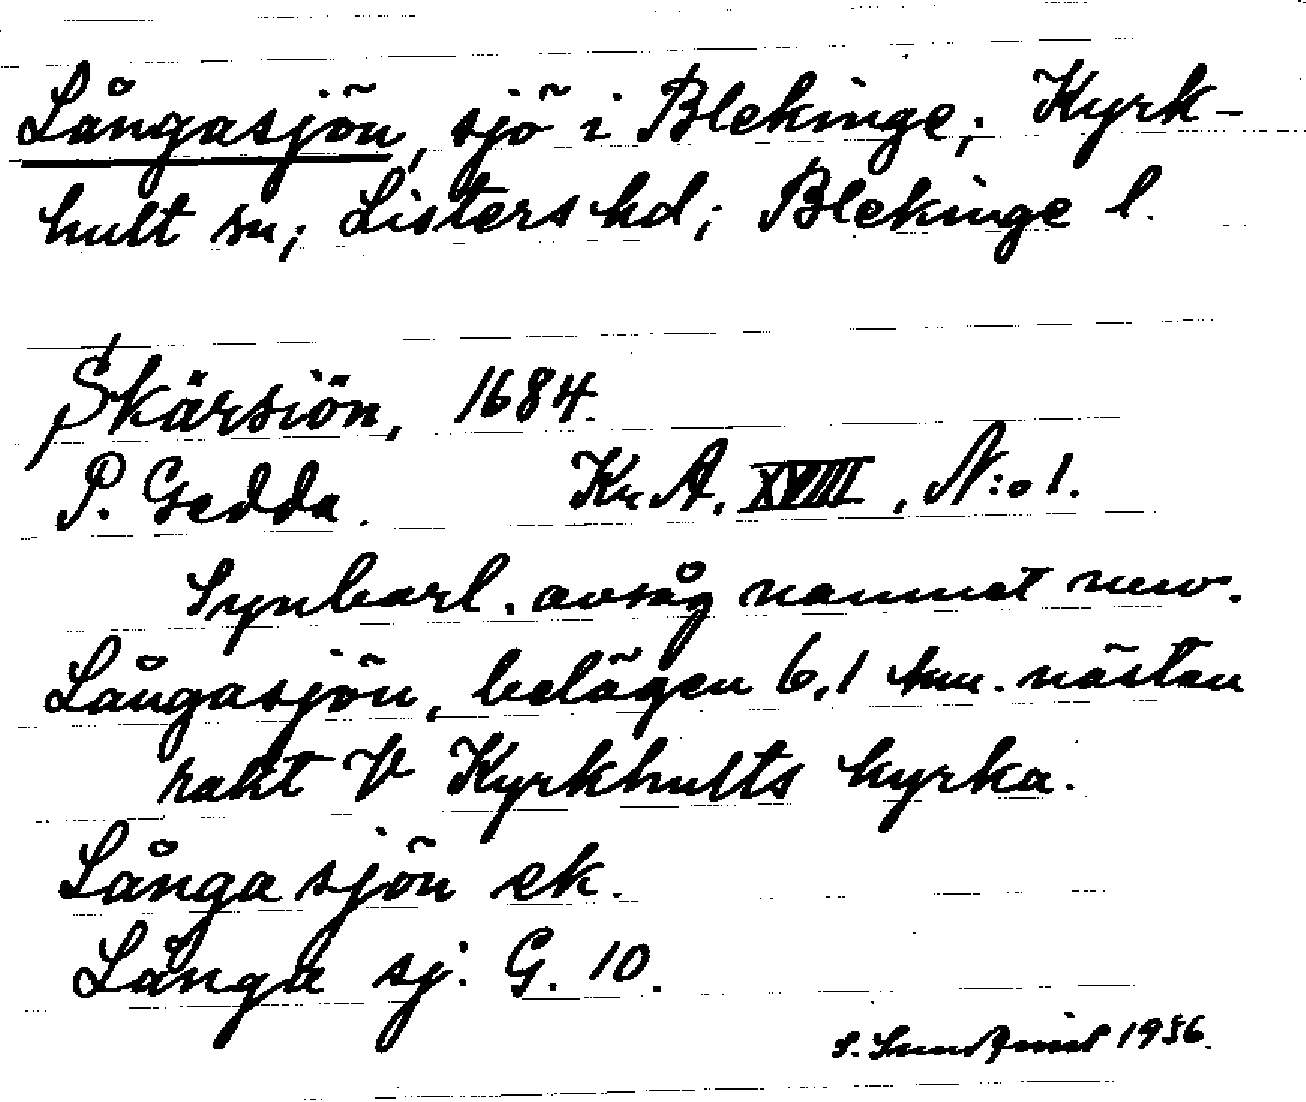 Långasjön, sjö i Blekinge; Kyrk-
hult sn; Listers hd; Blekinge l.
Skärsiön, 1684.
P. Gedda. Kr. A. XVIII, N:o 1.
Synbarl. avsåg namnet nuv.
Långasjön, belägen 6,1 km. nästan
rakt V Kyrkhults kyrka.
Långasjön ek.
Långa sj. G. 10.
S. Sundqvist 1956.